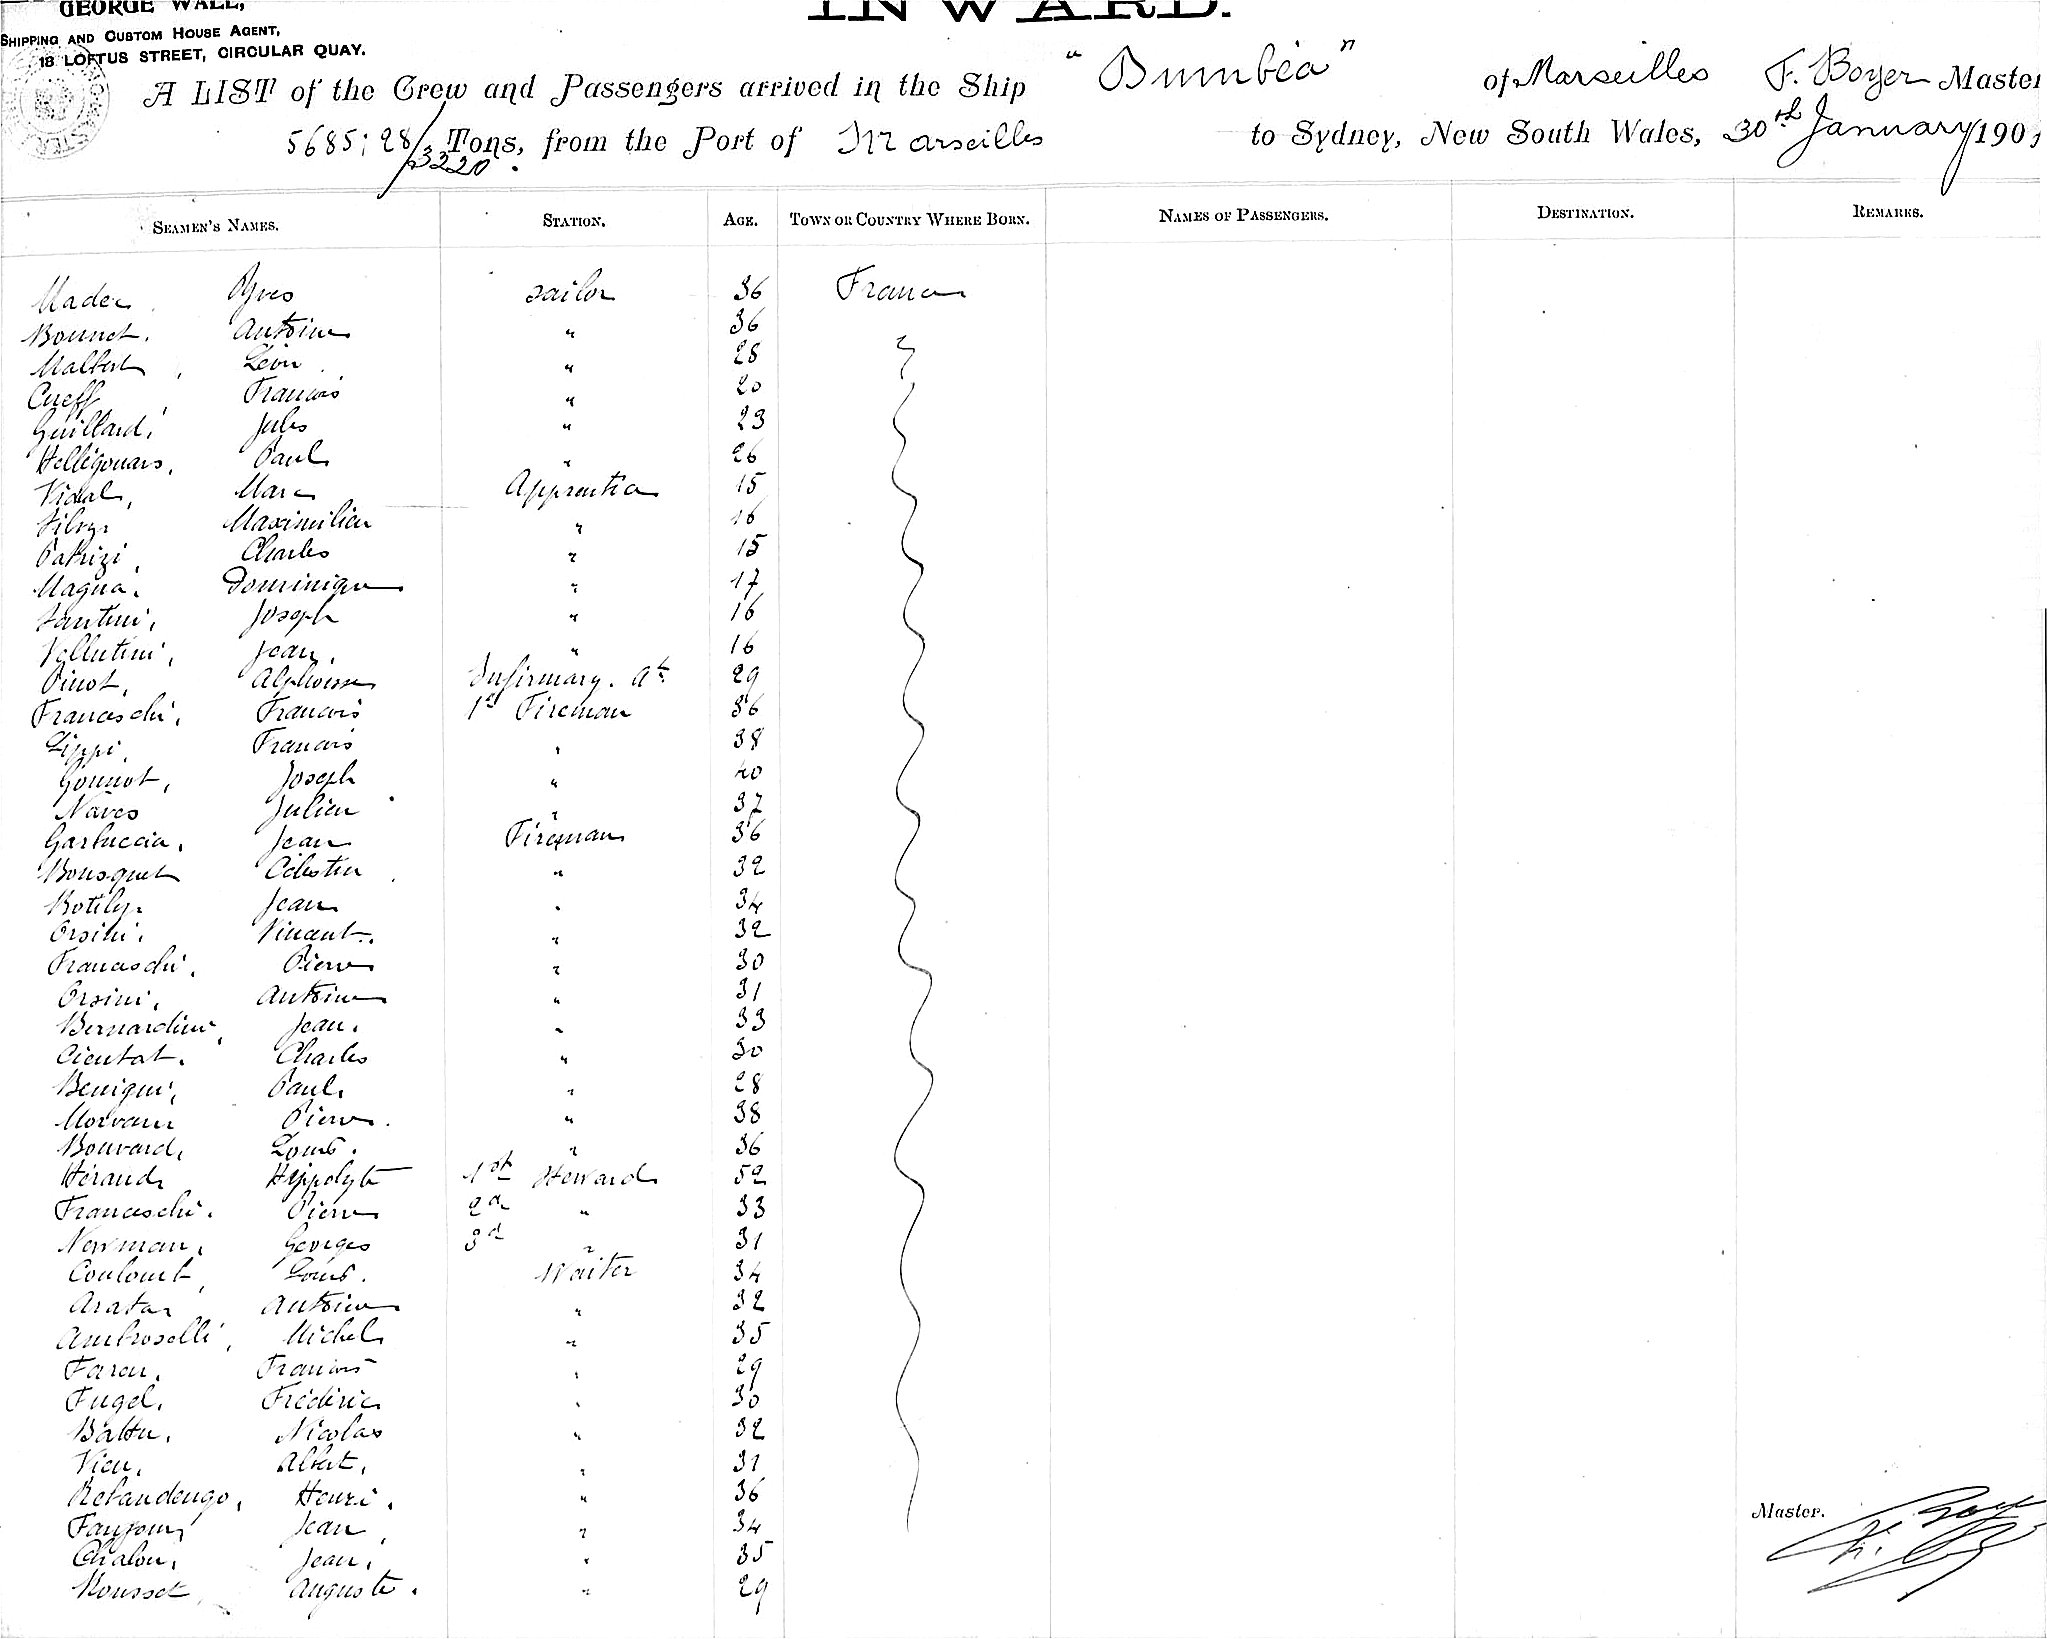 GEORGE WALL,
SHIPPING AND CUSTOM HOUSE AGENT,
18 LOFTUS STREET, CIRCULAR QUAY.
INWARD.
A LIST of the Crew and Passengers arrived in the Ship "Dumbéa" of Marseilles F. Boyer Master
5685;28/3220. Tons, from the Port of Marseilles to Sydney, New South Wales, 30th January 190
SEAMEN'S NAMES. STATION. AGE. TOWN OR COUNTRY WHERE BORN. NAMES OF PASSENGERS. DESTINATION. REMARKS.
Madec Yves sailor 36 France
Bonnet. Antoine " 36
Malbert, Léon " 28
Cueff, Francois " 20
Guillard, Jules " 23
Hellégouars, Paul " 26
Vidal, Marc Apprentice 15
Silvy Maximilien " 16
Patrizi, Charles " 15
Magna. Dominique " 17
Santini, Joseph " 16
Vellutini, Jean. " 16
Pinot, Alphonse Infirmary. at 29
Franceschi, Francois 1st Fireman 36
Lippi, Francois " 38
Gonnot, Joseph " 40
Naves Julien " 37
Garbuccia. Jean Fireman 36
Bousquet Célestin " 32
Botily Jean " 34
Orsini. Vincent. " 32
Franceschi. Pierre " 30
Orsini, Antoine " 31
Bernardini, Jean. " 33
Cientat. Charles " 30
Benigni, Paul. " 28
Morvan Pierre. " 38
Bouvard, Louis. " 36
Héraud Hippolyte 1st Steward 52
Franceschi. Pierre 2d " 33
Newman, Georges 3d " 31
Coulomb, Louis. Waiter 34
Arata Antoine " 32
Ambroselli, Michel " 35
Faren. Francois " 29
Fugel. Frédéric " 30
Battu. Nicolas " 32
Vieu. Albert, " 31
Rebandengo, Henri. " 36
Jean, " 34
Chalon, Jean, " 35
Rousset Auguste. " 29
Master.